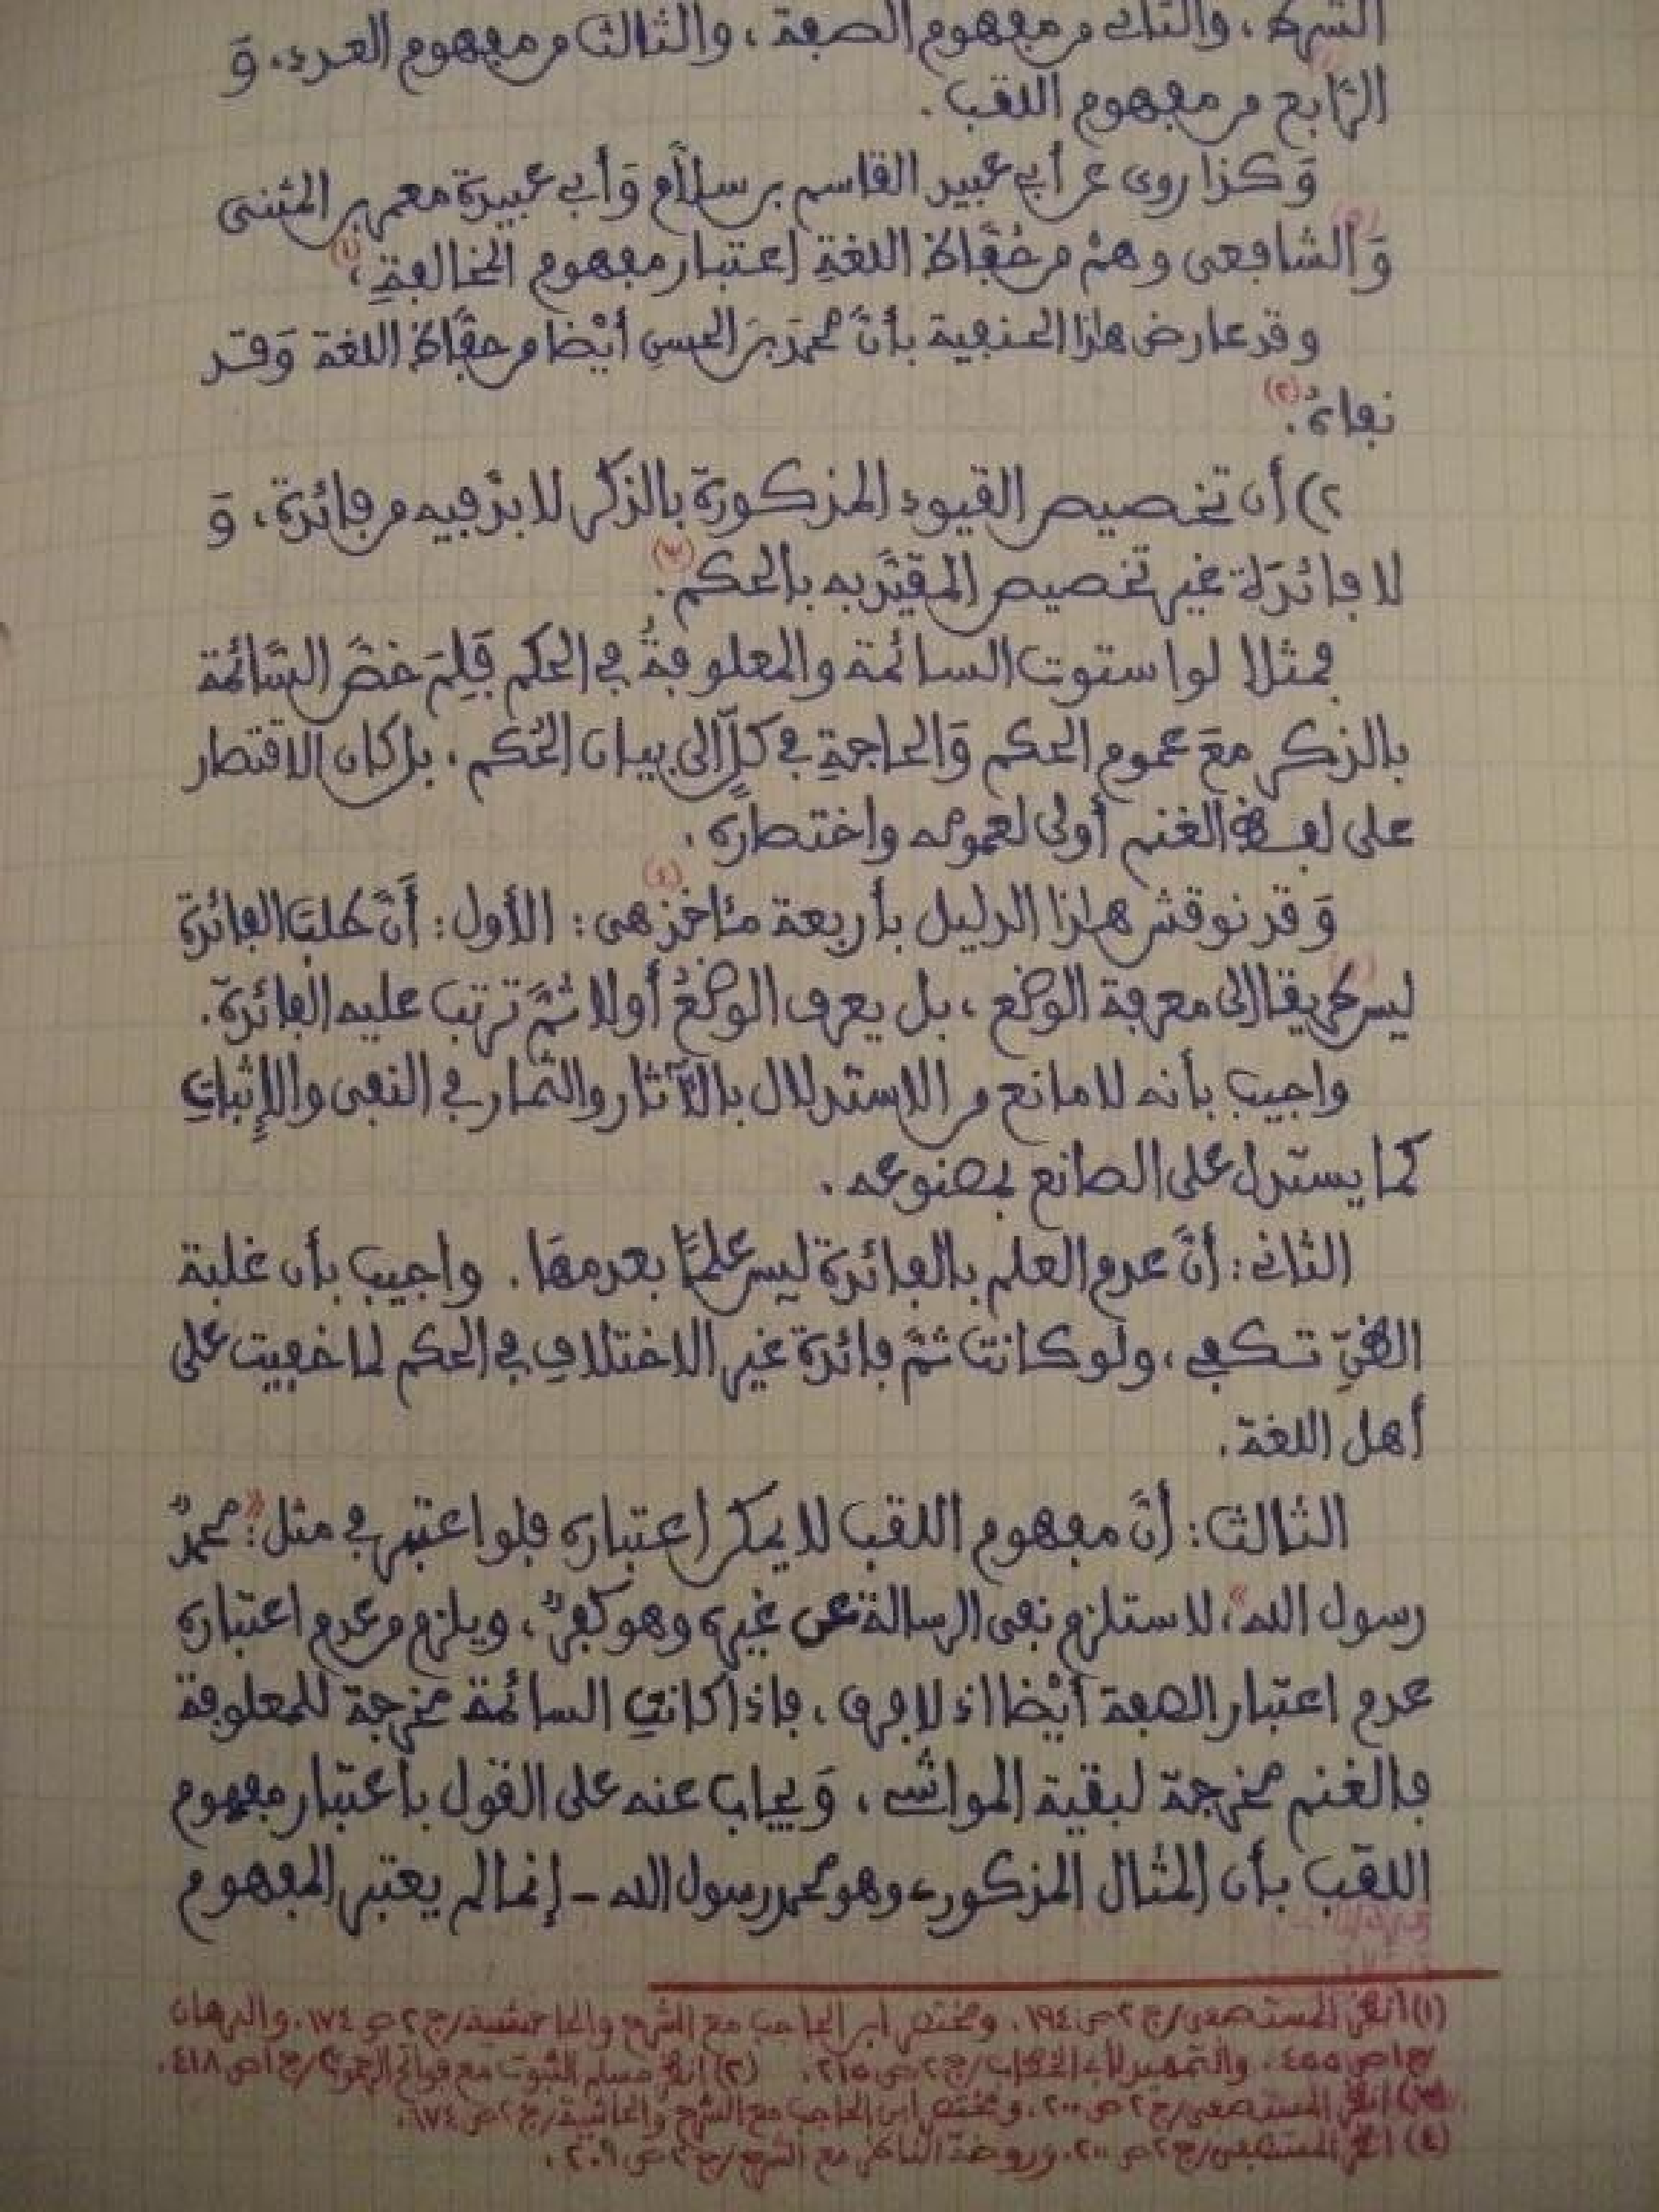 الشرط، والثاني من مفهوم الصفة، والثالث من مفهوم العدد. وَ
الرّابع من مفهوم اللقب.
وَكذا روى عن أبي عبيد القاسم بن سلاَّم وَأبي عبيدة معمر بن المثنى
وَالشافعى وهمْ من حُفَّاظ اللغةِ اعتبار مفهوم المخالفةِ،(١)
وقد عارض هذا الحنفية بأنَّ محمدَ بنَ الحسنِ أيْضا من حفَّاظ اللغة وَقد
نفاهُ.(٢)
٢) أن تخصيص القيود المذكورة بالذكر لا بدَّ فيه من فائدة، وَ
لا فائدَة غير تخصيص المقيَّد به بالحكم.(٣)
فمثلا لو استوت السائمة والمعلوفةُ في الحكم فَلِمَ خصَّ السَّائمة
بالذكر مَعَ عموم الحكم وَالحاجةِ في كلٍّ إلى بيان الحُكم. بل كان الاقتصار
على لفظ الغنم أولى لعمومه واختصاره.
وَقد نوقش هذا الدليل بأربعة مئاخذ هى:(٤) الأول: أَنَّ طلبَ الفائدة
ليس طريقا إلى معرفة الوضْع، بل يعرف الوضْعُ أولا ثمَّ ترتب عليه الفائدة.
واجيب بأنه لا مانع من الاستدلال بالآثار والثمار في النفى والإثباتِ
كما يستدل على الصانع بمصنوعه.
الثاني: أنَّ عدم العلم بالفائدة ليس علمًا بعدمهَا. واجيب بأن غلبة
الظنِّ تكفي، ولو كانت ثمَّ فائدة غير الاختلافِ في الحكم لما خفيت على
أهل اللغة.
الثالث: أنَّ مفهوم اللقب لا يمكن اعتباره فلو اعتبر في مثل: «محمدٌ
رسول الله»، لاستلزم نفى الرسالة عن غيره وهو كفرٌ، ويلزم من عدم اعتباره
عدم اعتبار الصفة أيْضا اذ لا فرق، فإذا كانتِ السائمة مخرجة للمعلوفة
فالغنم مخرجة لبقية المواشى، وَيجاب عنه على القول باعتبار مفهوم
اللقب بأن المثال المذكور - وهو محمد رسول الله - إنما لم يعتبر المفهوم
(١) انظر المستصفى/ج٢ص١٩٤. ومختصر ابن الحاجب مع الشرح والحاشية/ج٢ص١٧٤. والبرهان
ج١ص٤٥٥. والتمهيد لأبي الخطاب/ج٢ص٢١٥. (٢) انظر مسلم الثبوت مع فواتح الرحموت/ج١ص٤١٨.
(٣) انظر المستصفى/ج٢ص٢٠٠. ومختصر ابن الحاجب مع الشرح والحاشية/ج٢ص١٧٤.
(٤) انظر المستصفى/ج٢ص٢٠٠. وروضة الناظر مع الشرح/ج٢ص٢٠٦.